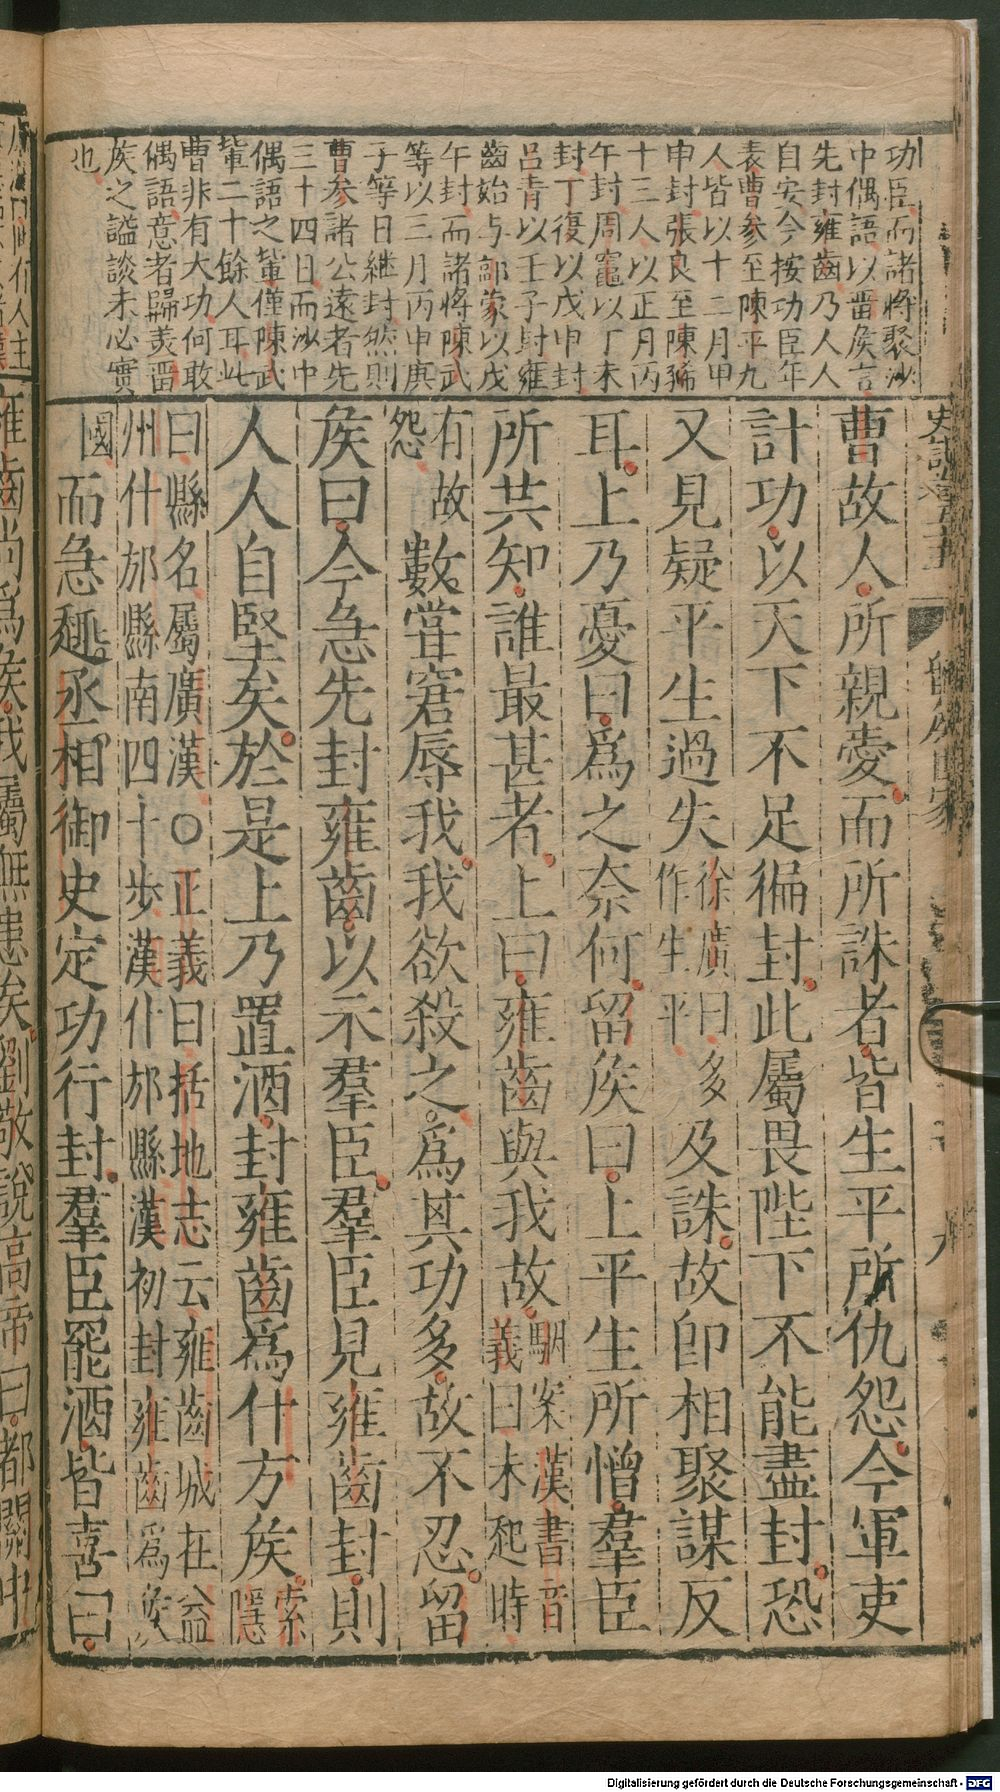 功臣而諸將聚沙
中偶語以畱矦言
先封雍齒乃人人
自安今按功臣年
表曹參至陳平九
人皆以十二月甲
申封張良至陳豨
十三人以正月丙
午封周竈以丁未
封丁復以戊申封
呂青以壬子封雍
齒始与郭蒙以戊
午封而諸將陳武
等以三月丙申庚
子等日継封然則
曹參諸公遠者先
三十四日而沙中
偶語之軰僅陳武
軰二十餘人耳此
曹非有大功何敢
偶語意者歸羙畱
矦之謚談未必實
也
曹故人所親愛而所誅者皆生平所仇怨今軍吏
計功以天下不足徧封此屬畏陛下不能盡封恐
又見疑平生過失
徐廣曰多
作生平
及誅故卽相聚謀反
耳上乃憂曰爲之奈何留矦曰上平生所憎羣臣
所共知誰最甚者上曰雍齒與我故
駰案漢書音
義曰未起時
有故
怨
數甞窘辱我我欲殺之爲其功多故不忍留
矦曰今急先封雍齒以示羣臣羣臣見雍齒封則
人人自堅矣於是上乃置酒封雍齒爲什方矦
索
隱
曰縣名屬廣漢○正義曰括地志云雍齒城在益
州什邡縣南四十步漢什邡縣漢初封雍齒爲矦
國
而急趣丞相御史定功行封羣臣罷酒皆喜曰
雍齒尚爲矦我屬無患矣劉敬說高帝曰都關中
Digitalisierung gefördert durch die Deutsche Forschungsgemeinschaft - DFG